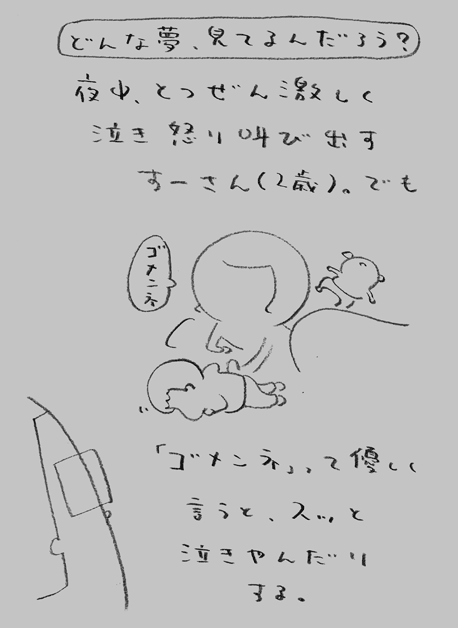 どんな夢、見てるんだろう?
夜中、とつぜん激しく
泣き怒り叫び出す
すーさん(2歳)。でも
ゴメンネ
「ゴメンネ」、って優しく
言うと、スッと
泣きやんだり
する。